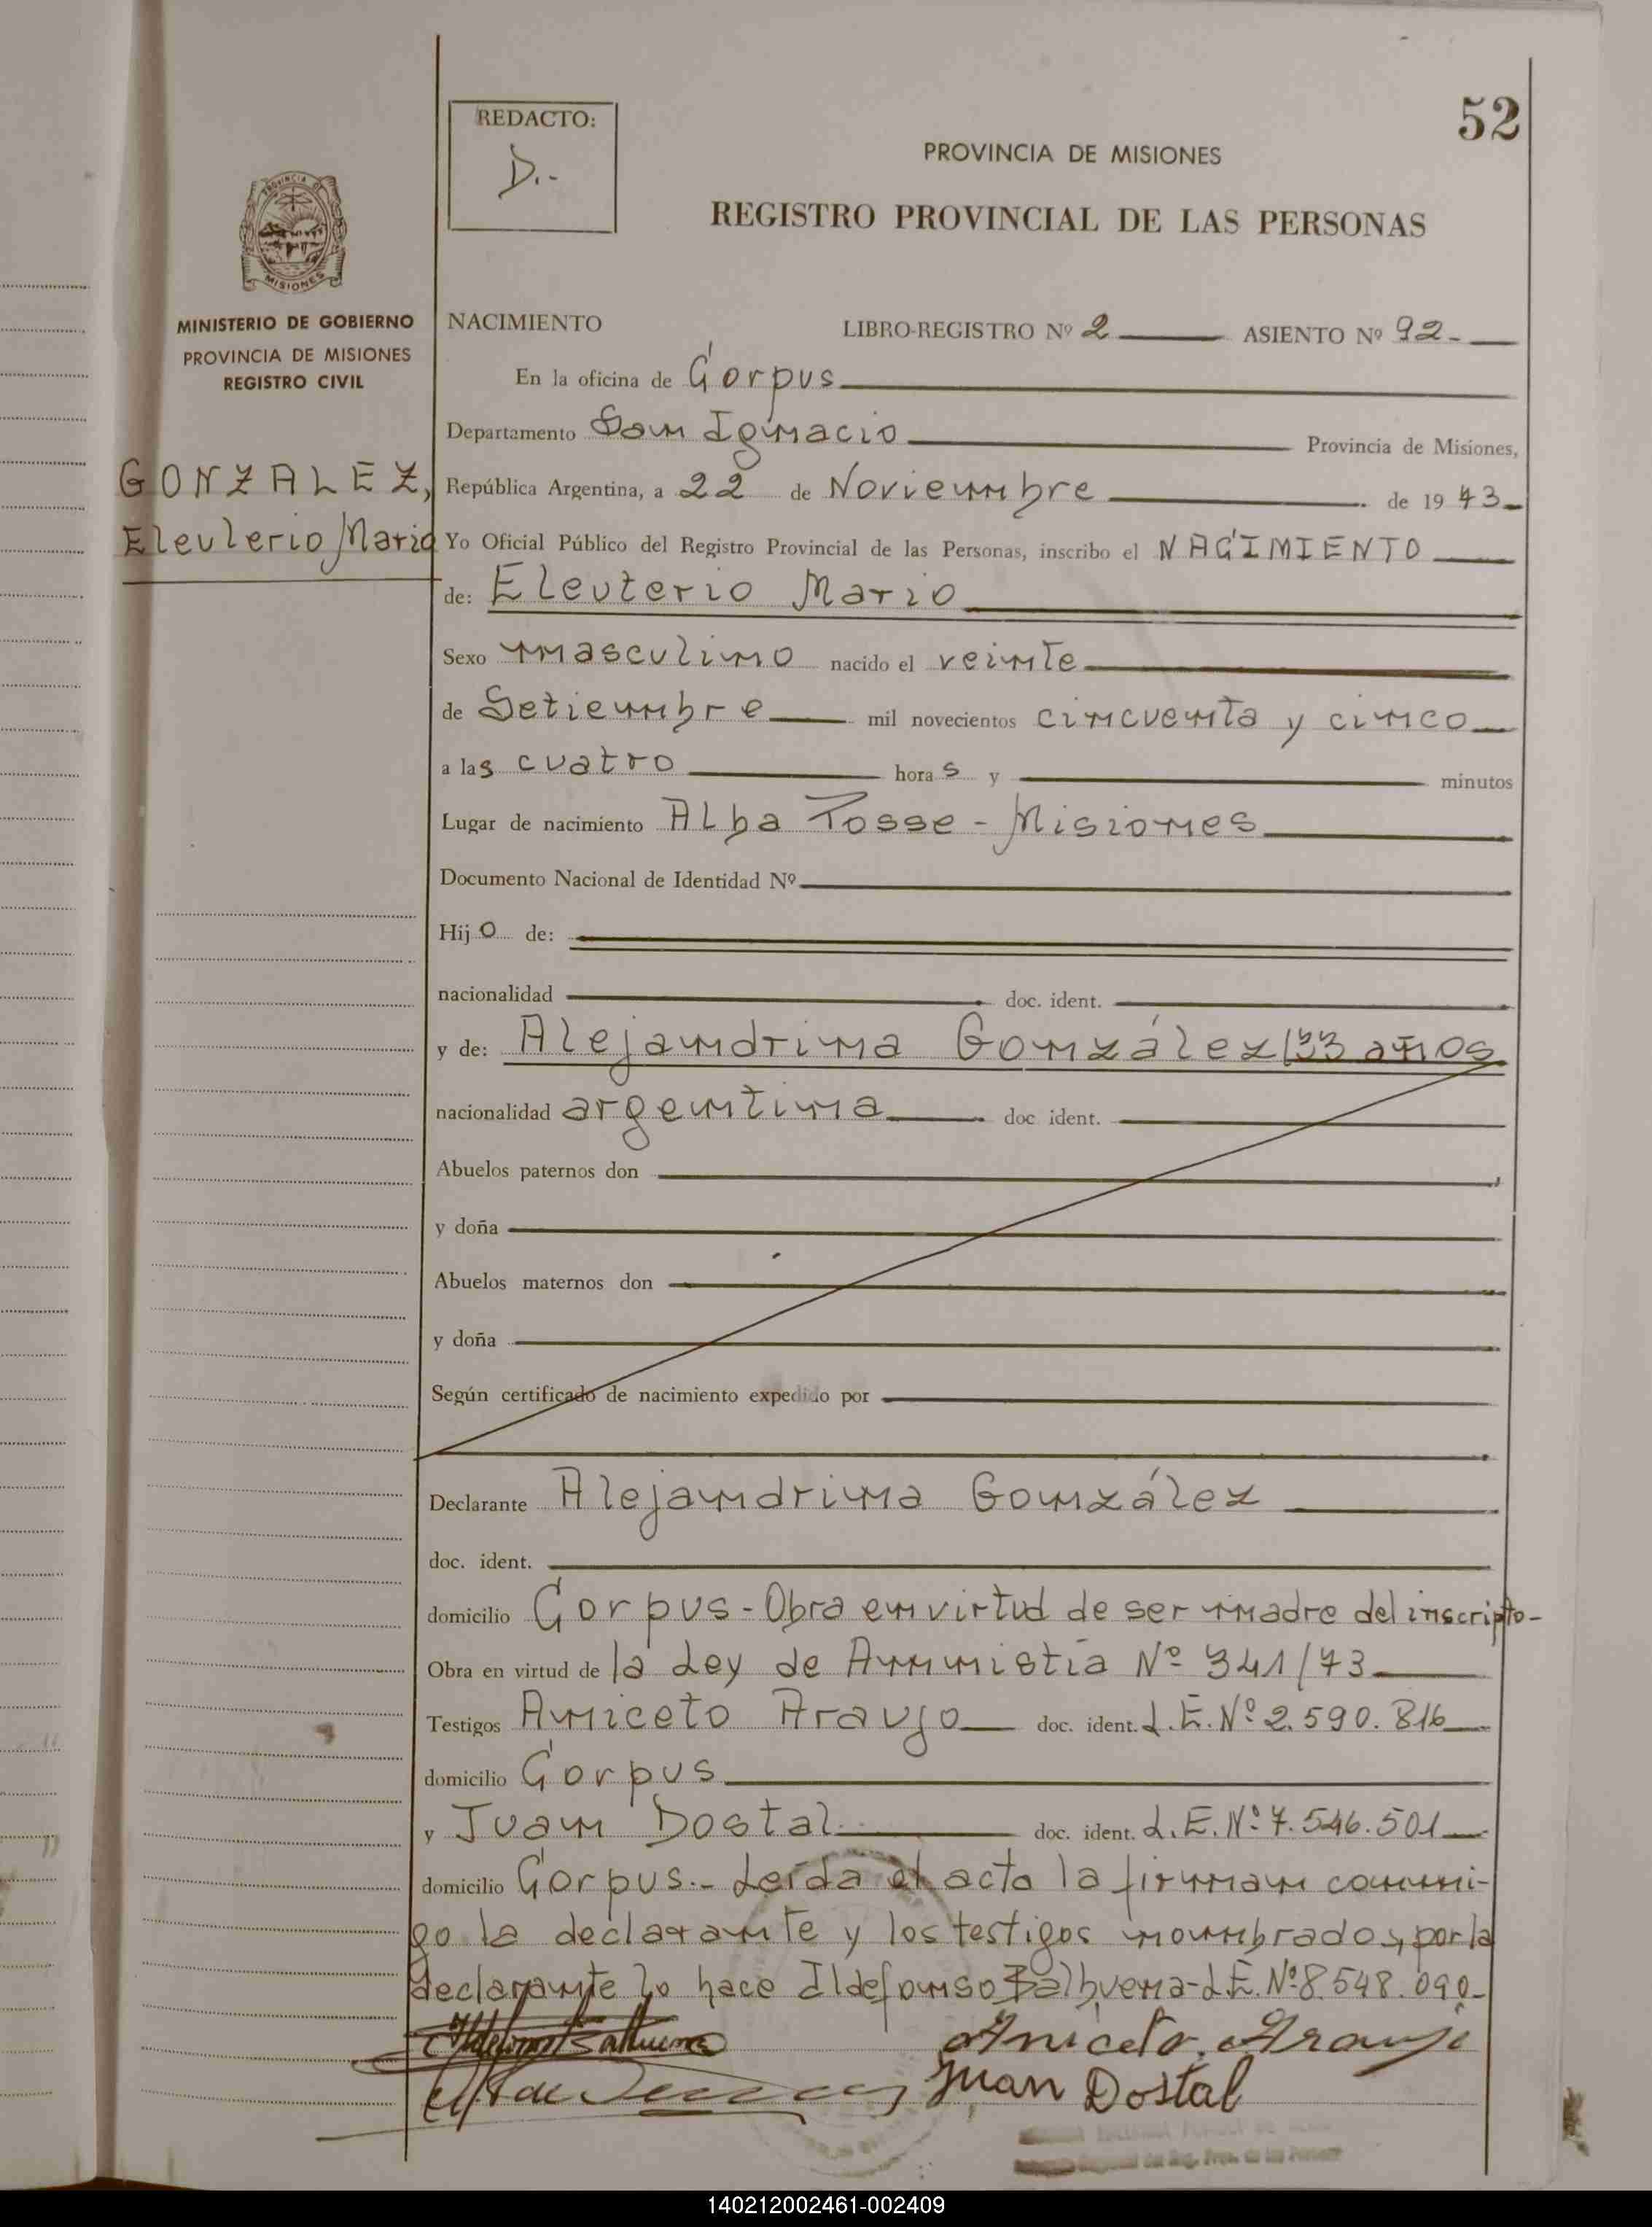 52
REDACTO:
D.-
PROVINCIA DE MISIONES
REGISTRO PROVINCIAL DE LAS PERSONAS
PROVINCIA DE
MISIONES
MINISTERIO DE GOBIERNO
PROVINCIA DE MISIONES
REGISTRO CIVIL
GONZALEZ,
Eleuterio Mario
NACIMIENTO LIBRO-REGISTRO Nº 2 ASIENTO Nº 92-
En la oficina de Corpus
Departamento San Ignacio Provincia de Misiones,
República Argentina, a 22 de Noviembre de 1973
Yo Oficial Público del Registro Provincial de las Personas, inscribo el NACIMIENTO
de: Eleuterio Mario
Sexo masculino nacido el veinte
de Setiembre mil novecientos cincuenta y cinco
a las cuatro horas y minutos
Lugar de nacimiento Alba Posse - Misiones
Documento Nacional de Identidad Nº
Hijo de:
nacionalidad doc. ident.
y de: Alejandrina González (33 años
nacionalidad argentina doc ident.
Abuelos paternos don
y doña
Abuelos maternos don
y doña
Según certificado de nacimiento expedido por
Declarante Alejandrina González
doc. ident.
domicilio Corpus - Obra en virtud de ser madre del inscripto-
Obra en virtud de la Ley de Amnistía Nº 341/73
Testigos Aniceto Araujo doc. ident. L.E. Nº 2.590.816
domicilio Corpus
y Juan Dostal doc. ident. L.E. Nº 7.546.501
domicilio Corpus.- Leída el acta la firman conmi-
go la declarante y los testigos nombrados, por la
declarante lo hace Ildefonso Balbuena-L.E. Nº 8.548.090-
Ildefonso Balbuena
Aniceto Araujo
Juan Dostal
140212002461-002409